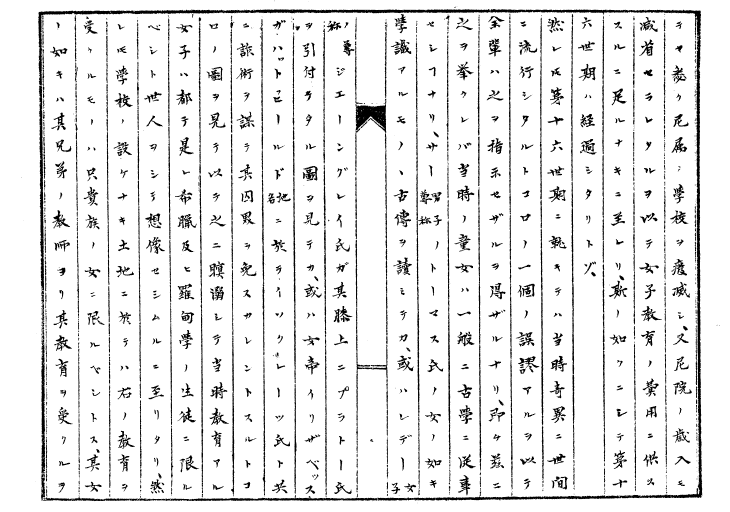 テヤ總ク尼属ノ學校ヲ廢滅シ、又尼院ノ歳入モ
減省セラレタルヲ以テ女子教育ノ費用ニ供ス
スルニ足ルナキニ至レリ、斯ノ如クニシテ第十
六世期ハ經過シタリト以
然レ𪜈第十六世期ニ就キテハ当時奇異ニ世間
ニ流行シタルトコロノ一個ノ誤謬アルヲ以テ
余輩ハ之ヲ指示セザルヲ得ザルナリ、即ケ茲ニ
之ヲ挙クレバ当時ノ童女ハ一般ニ古學ニ従事
セシフナリ、サー男子ノ尊称トーマス氏ノ女ノ如キ
學識アルモノヽ古傳ヲ讀ミテカ、或ハレデー女子
ノ尊称ジエーングレイ氏ガ其膝上ニプラトー氏
ヲ引付ラタル圖ヲ見テカ、或ハ女帝イリザベッス
ガハットヒールド地名ニ於ライツクレーツ氏ト共
ニ詐術ヲ謀テ其囚累ヲ免スカレントスルトコ
ロノ圖ヲ見テ以テ之ニ瞑溺シテ当時教育アル
女子ハ都テ是レ希臘及ヒ羅甸學ノ生徒ニ限ル
ベシト世人ヲシテ想像セシムルニ至リタリ、然
レ𪜈學校ノ設ケナキ土地ニ於テハ右ノ教育ヲ
受クルモノハ只貴族ノ女ニ限ルベントス、其女
ノ如キハ其兄弟ノ教師ヨリ其教育ヲ受クルヲ